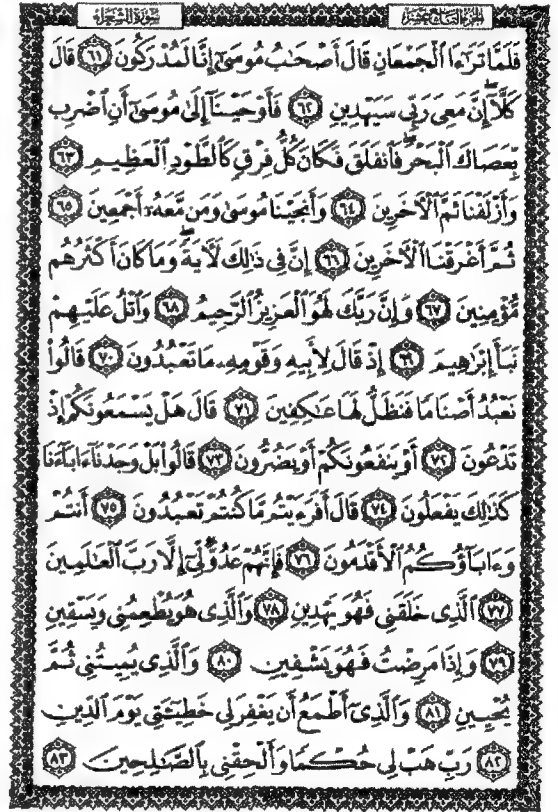 سُورَةُ الشُّعَرَاءِ
الجزء التاسع عشر
فَلَمَّا تَرَٰٓءَا ٱلۡجَمۡعَانِ قَالَ أَصۡحَٰبُ مُوسَىٰٓ إِنَّا لَمُدۡرَكُونَ ٦١ قَالَ
كَلَّآۖ إِنَّ مَعِيَ رَبِّي سَيَهۡدِينِ ٦٢ فَأَوۡحَيۡنَآ إِلَىٰ مُوسَىٰٓ أَنِ ٱضۡرِب
بِّعَصَاكَ ٱلۡبَحۡرَۖ فَٱنفَلَقَ فَكَانَ كُلُّ فِرۡقٖ كَٱلطَّوۡدِ ٱلۡعَظِيمِ ٦٣
وَأَزۡلَفۡنَا ثَمَّ ٱلۡأٓخَرِينَ ٦٤ وَأَنجَيۡنَا مُوسَىٰ وَمَن مَّعَهُۥٓ أَجۡمَعِينَ ٦٥
ثُمَّ أَغۡرَقۡنَا ٱلۡأٓخَرِينَ ٦٦ إِنَّ فِي ذَٰلِكَ لَأٓيَةٗۖ وَمَا كَانَ أَكۡثَرُهُم
مُّؤۡمِنِينَ ٦٧ وَإِنَّ رَبَّكَ لَهُوَ ٱلۡعَزِيزُ ٱلرَّحِيمُ ٦٨ وَٱتۡلُ عَلَيۡهِمۡ
نَبَأَ إِبۡرَٰهِيمَ ٦٩ إِذۡ قَالَ لِأَبِيهِ وَقَوۡمِهِۦ مَا تَعۡبُدُونَ ٧٠ قَالُواْ
نَعۡبُدُ أَصۡنَامٗا فَنَظَلُّ لَهَا عَٰكِفِينَ ٧١ قَالَ هَلۡ يَسۡمَعُونَكُمۡ إِذۡ
تَدۡعُونَ ٧٢ أَوۡ يَنفَعُونَكُمۡ أَوۡ يَضُرُّونَ ٧٣ قَالُواْ بَلۡ وَجَدۡنَآ ءَابَآءَنَا
كَذَٰلِكَ يَفۡعَلُونَ ٧٤ قَالَ أَفَرَءَيۡتُم مَّا كُنتُمۡ تَعۡبُدُونَ ٧٥ أَنتُمۡ
وَءَابَآؤُكُمُ ٱلۡأَقۡدَمُونَ ٧٦ فَإِنَّهُمۡ عَدُوّٞ لِّيٓ إِلَّا رَبَّ ٱلۡعَٰلَمِينَ
٧٧ ٱلَّذِي خَلَقَنِي فَهُوَ يَهۡدِينِ ٧٨ وَٱلَّذِي هُوَ يُطۡعِمُنِي وَيَسۡقِينِ
٧٩ وَإِذَا مَرِضۡتُ فَهُوَ يَشۡفِينِ ٨٠ وَٱلَّذِي يُمِيتُنِي ثُمَّ
يُحۡيِينِ ٨١ وَٱلَّذِيٓ أَطۡمَعُ أَن يَغۡفِرَ لِي خَطِيٓـَٔتِي يَوۡمَ ٱلدِّينِ
٨٢ رَبِّ هَبۡ لِي حُكۡمٗا وَأَلۡحِقۡنِي بِٱلصَّٰلِحِينَ ٨٣